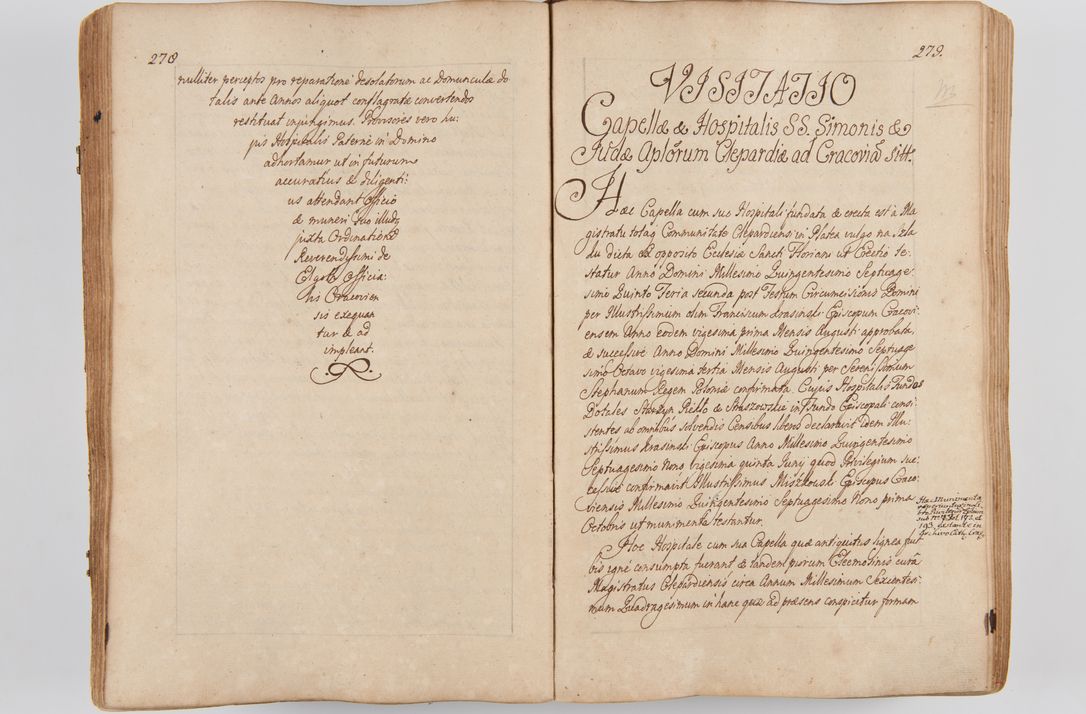 278
nulliter perceptos pro reparatione desolatorum ac Domunculæ do
talis ante Annos aliquot conflagratæ convertendos
restituat injungimus. Provisores vero hu:
jus Hospitalis Paterne in Domino
adhortamur ut in futurum
accuratius & diligenti:
us attendant Officio
& muneri suo illudq
juxta Ordinatione
Reverendissimi de
Elgoth Officia:
lis Cracovien
sis exequan
tur & ad
impleant.
279.
VISITATIO
Capellæ & Hospitalis SS. Simonis &
Judæ Aplorum Clepardiæ ad Cracovia Sitt.
Hæc Capella cum suo Hospitali fundata & erecta est à Ma
gistratu totaq Communitate Clepardiensi in Platea vulgo na Szla
ku dicta ex opposito Ecclesiæ Sancti Floriani ut Erectio te:
statur Anno Domini Millesimo Quingentesimo Septuage:
simo Quinto Feria secunda post Festum Circumcisionis Domini
per Illustrissimum olim Franciscum Krasinski Episcopum Cracovi:
ensem Anno eodem vigesima prima Mensis Augusti approbata,
& successive Anno Domini Millesimo Quingentesimo Septuage
simo Octavo vigesima tertia Mensis Augusti per Serenissimum
Stephanum Regem Poloniæ confirmata. Cujus Hospitalis Fundos
Dotales Starzyn Retto & Staszowskie in Fundo Episcopali consi
stentes ab omnibus solvendis Censibus liberos declaravit idem Illu:
strissimus Krasinski Episcopus Anno Millesimo Quingentesimo
Septuagesimo Nono vigesima quinta Junij quod Privilegium suc:
cessive confirmavit Illustrissimus Miszkowski Episcopus Craco:
viensis Millesimo Quingentesimo Septuagesimo Nono prima
Octobris ut munimenta testantur.
Hæc Munimenta
sub
193.
Archivo
Hoc Hospitale cum sua Capella quæ antiquitus lignea fue
bis igne consumpta fuerant & tandem piorum Eleemosinis cura
Magistratus Clepardiensis circa Annum Millesimum Sexcentesi:
mum Quadragesimum in hanc quæ ad præsens conspicitur formam